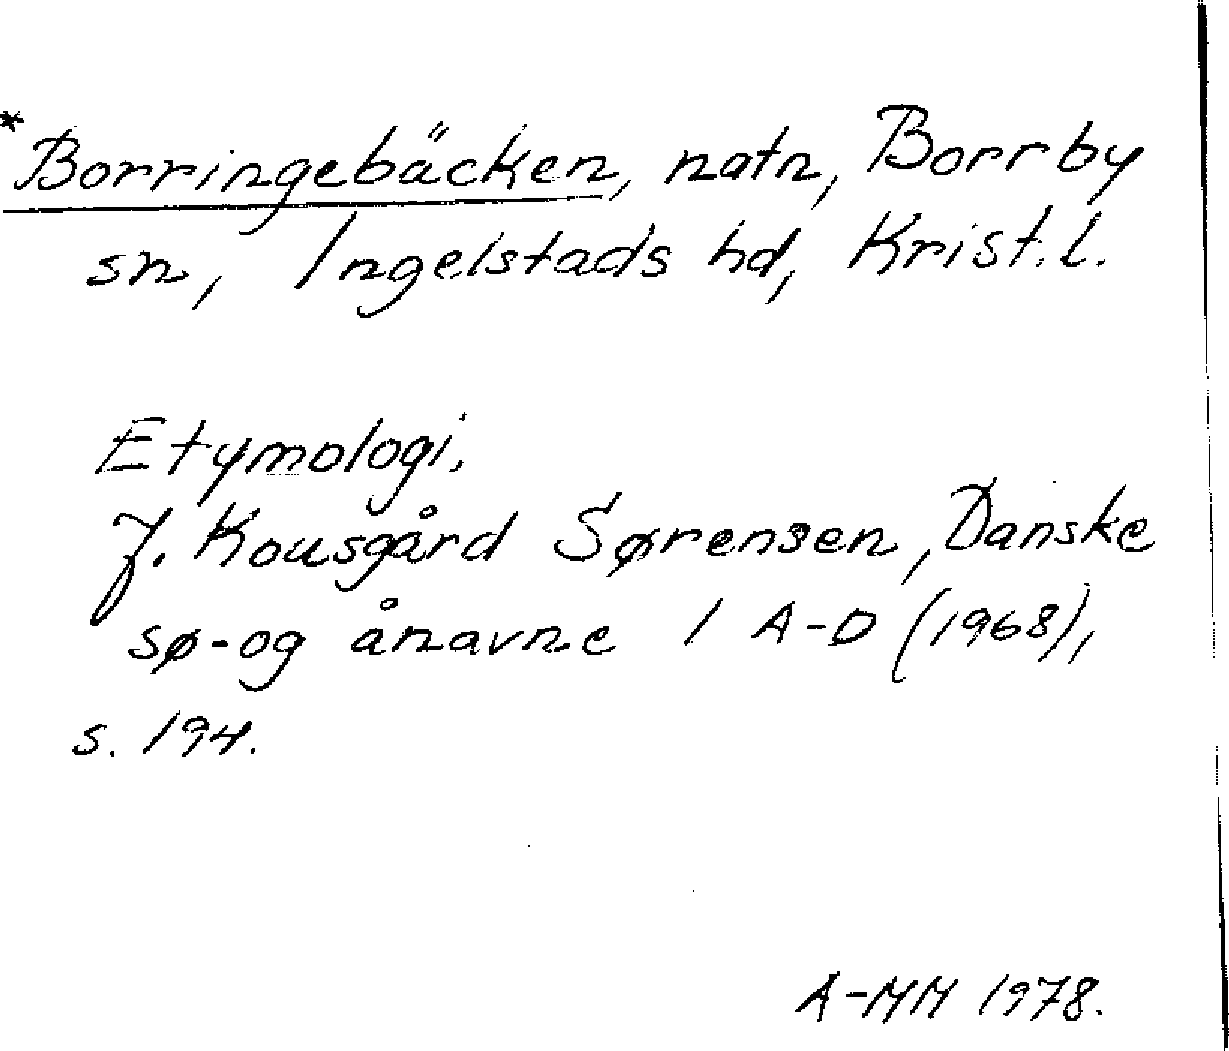 *Borringebäcken, natn, Borrby
sn, Ingelstads hd, Krist. l.
Etymologi.
J. Kousgård Sørensen, Danske
sø- og ånavne 1 A-D (1968),
s. 194.
A-MM 1978.